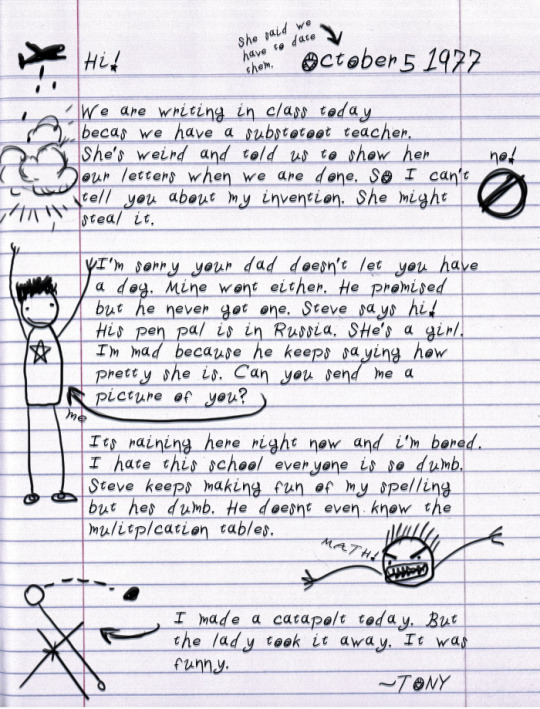 She said we
have to date
them.
Hi!
October 5 1977
We are writing in class today
becas we have a substotoot teacher.
She's weird and told us to show her
our letters when we are done. SO I can't
tell you about my invention. She might
steal it.
no!
I'm sorry your dad doesn't let you have
a dog. Mine wont either. He promised
but he never got one. Steve says hi!
His pen pal is in Russia. SHe's a girl.
I'm mad because he keeps saying how
pretty she is. Can you send me a
picture of you?
me
Its raining here right now and i'm bored.
I hate this school everyone is so dumb.
Steve keeps making fun of my spelling
but hes dumb. He doesnt even know the
mulitplcation tables.
MATH!
I made a catapolt today. But
the lady took it away. It was
funny.
~TONY